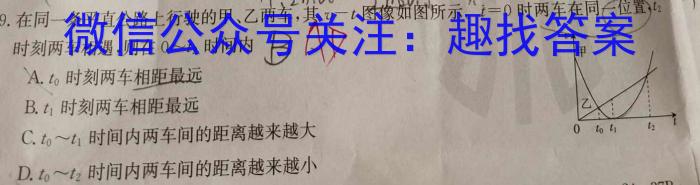 9.在同一 直公路上行驶的甲、乙两车,其 -t图像如图所示,t=0时两车在同一位置,t₂
时刻两车相遇,则在0 时间内
微信公众号关注：趣找答案
A. t₀ 时刻两车相距最远
B. t₁ 时刻两车相距最远
C. t₀～t₁ 时间内两车间的距离越来越大
D. t₀～t₂ 时间内两车间的距离越来越小
甲
乙
0 t₀ t₁ t₂ t